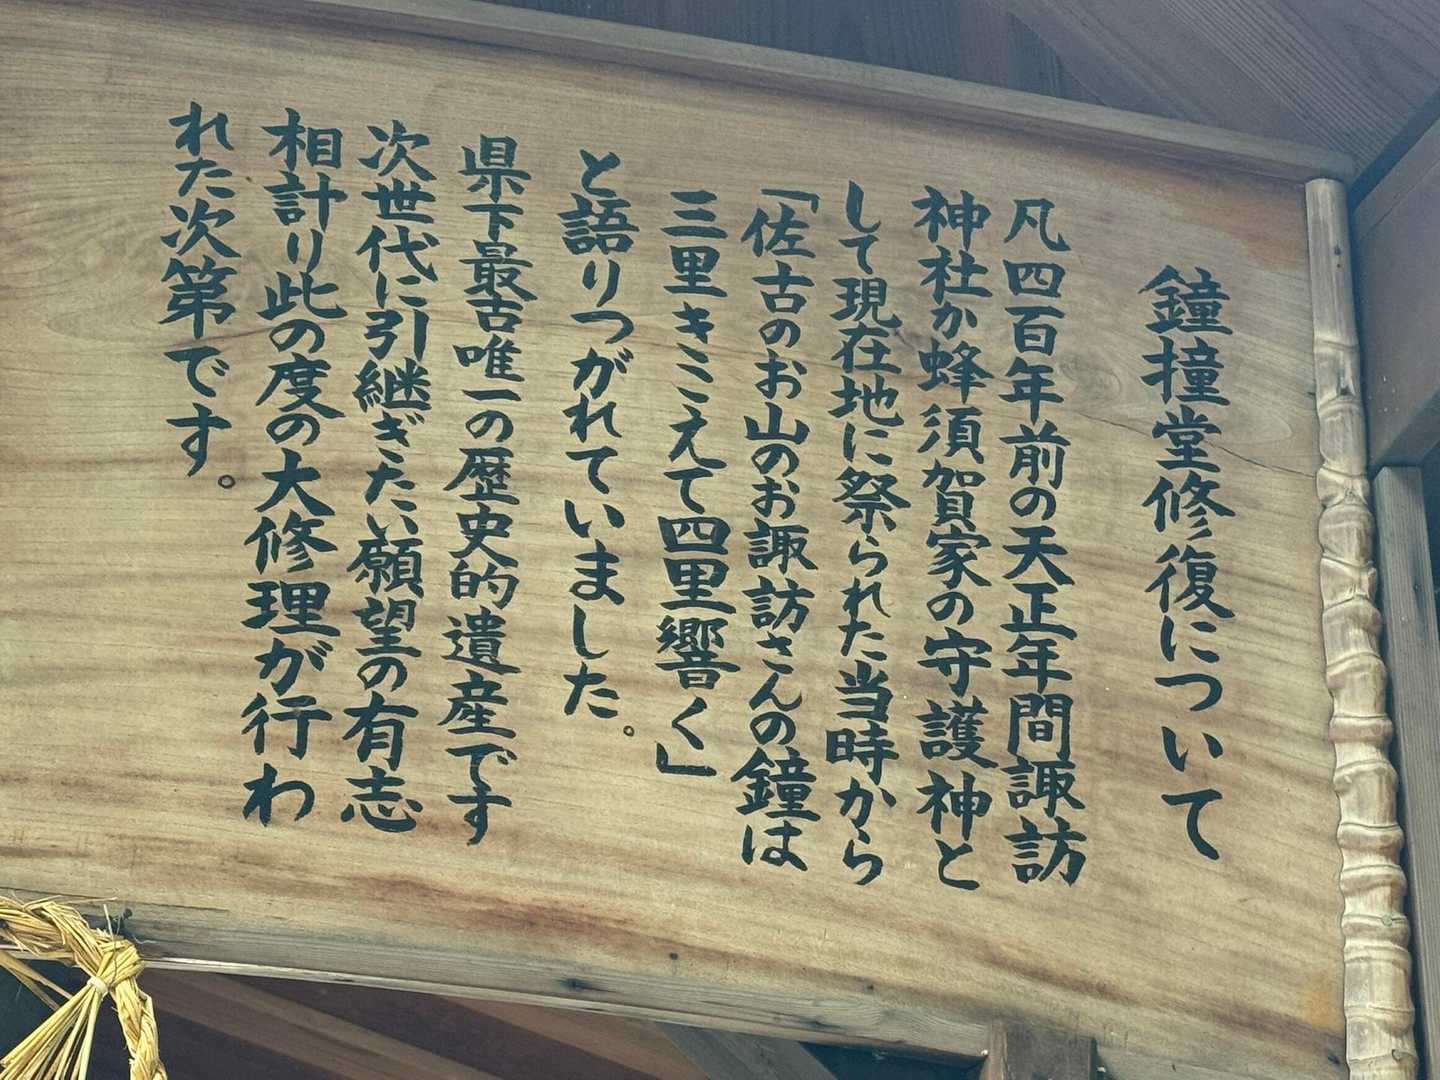 鐘撞堂修復について
凡四百年前の天正年間諏訪
神社か蜂須賀家の守護神と
して現在地に祭られた当時から
「佐古のお山のお諏訪さんの鐘は
三里きこえて四里響く」
と語りつがれていました。
県下最古唯一の歴史的遺産です
次世代に引継ぎたい願望の有志
相計り此の度の大修理が行わ
れた次第です。